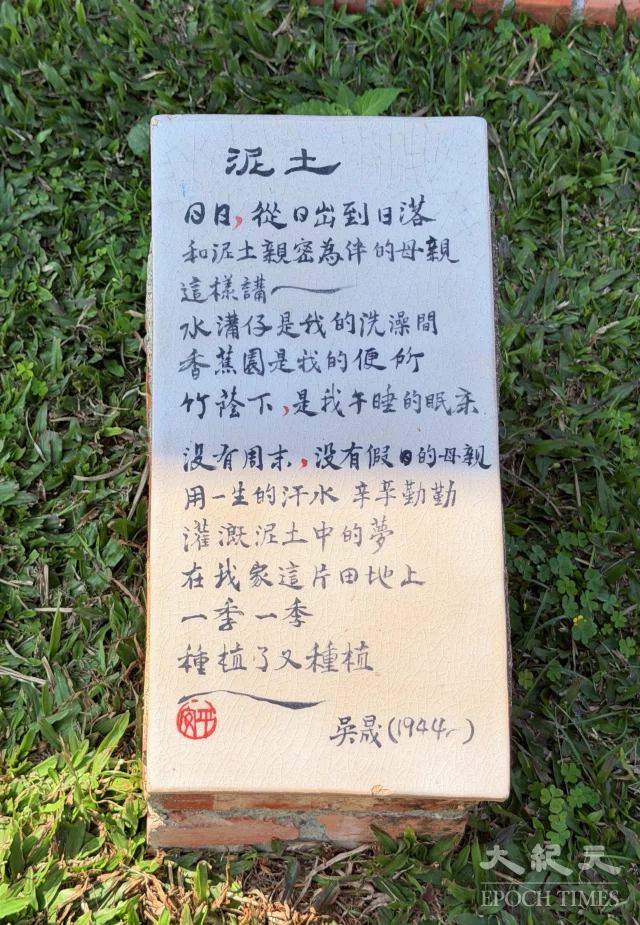 泥土
日日,從日出到日落
和泥土親密為伴的母親
這樣講——
水溝仔是我的洗澡間
香蕉園是我的便所
竹蔭下,是我午睡的眠床
沒有周末,沒有假日的母親
用一生的汗水 辛辛勤勤
灌溉泥土中的夢
在我家這片田地上
一季一季
種植了又種植
平安
吳晟(1944~)
大紀元
EPOCH TIMES